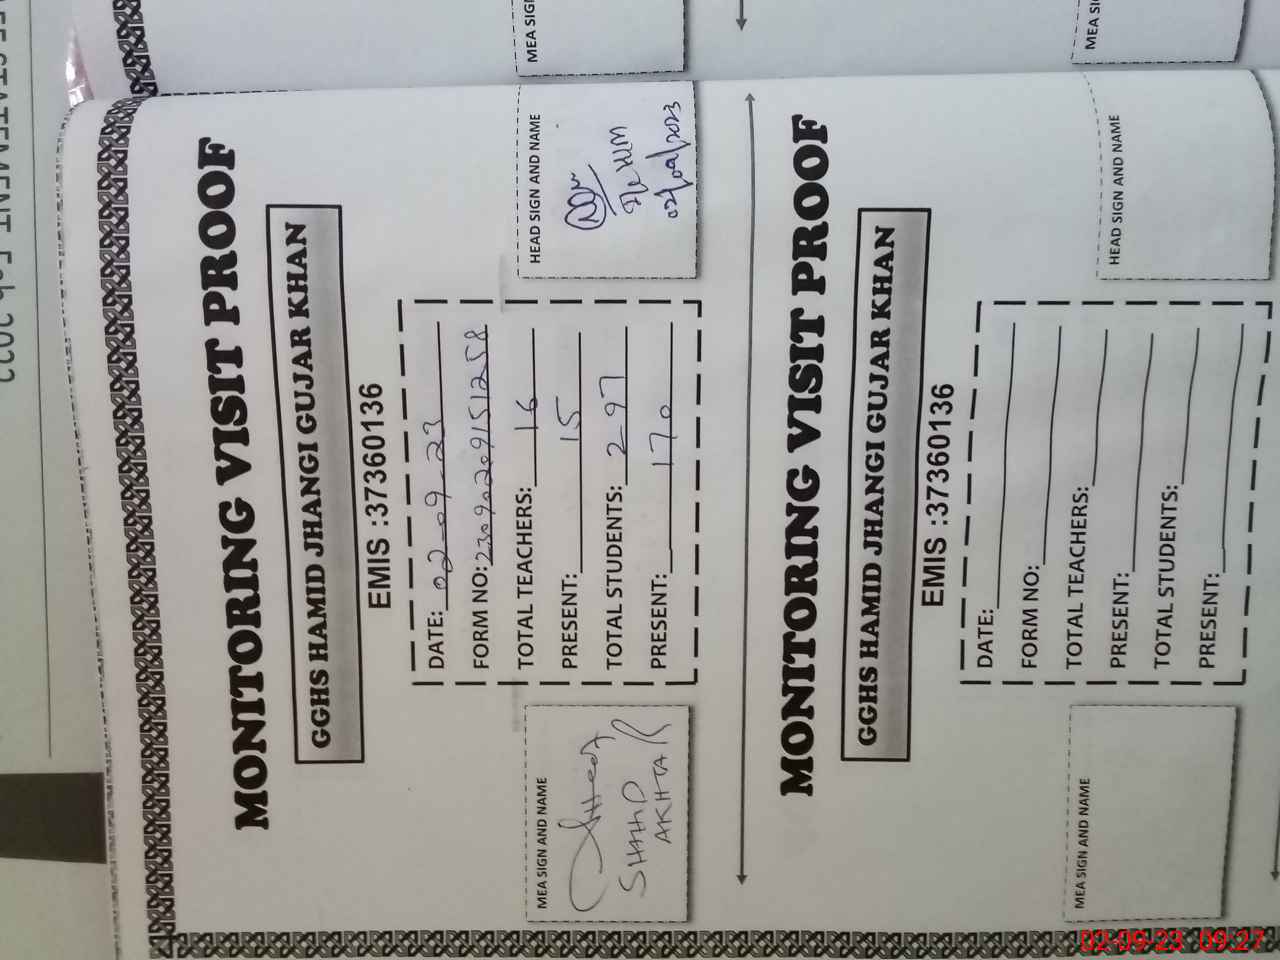 MEA SIGN
MEA SI
MONITORING VISIT PROOF
GGHS HAMID JHANGI GUJAR KHAN
EMIS :37360136
DATE: 02-09-23
FORM NO: 23090209151258
TOTAL TEACHERS: 16
PRESENT: 15
TOTAL STUDENTS: 297
PRESENT: 170
MEA SIGN AND NAME
SHAHD
AKHTAR
HEAD SIGN AND NAME
02/09/2023
MONITORING VISIT PROOF
GGHS HAMID JHANGI GUJAR KHAN
EMIS :37360136
DATE:
FORM NO:
TOTAL TEACHERS:
PRESENT:
TOTAL STUDENTS:
PRESENT:
MEA SIGN AND NAME
HEAD SIGN AND NAME
STATEMENT Feb 2023
02-09-23 09:27